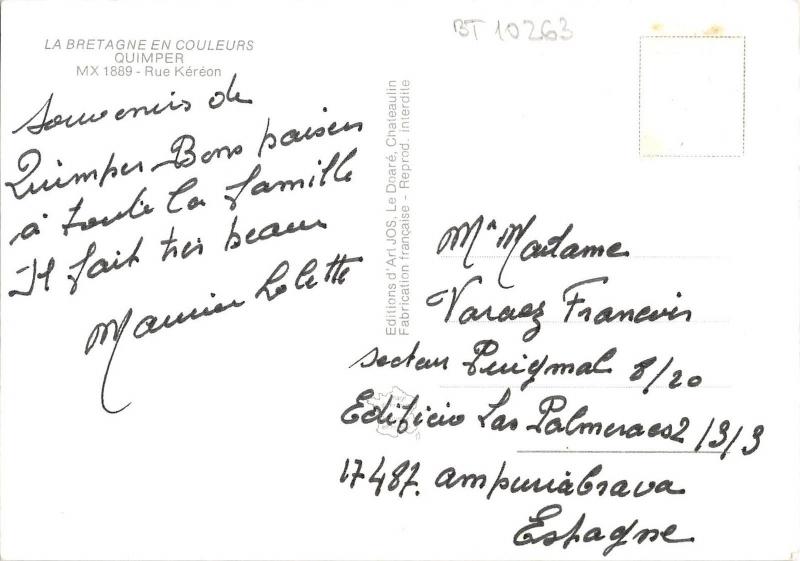 BT 10263
LA BRETAGNE EN COULEURS
QUIMPER
MX 1889 - Rue Kéréon
Souvenirs de
Quimper - Bons baisers
à toute la famille
Il fait très beau
Maurice Lolette
Editions d'Art JOS, Le Doaré, Chateaulin
Fabrication française - Reprod. interdite
Mr Madame
Varaez Francois
secteur Puigmal 8/20
Edificio Las Palmeraes 2/3/3
17487. ampuriabrava
Espagne